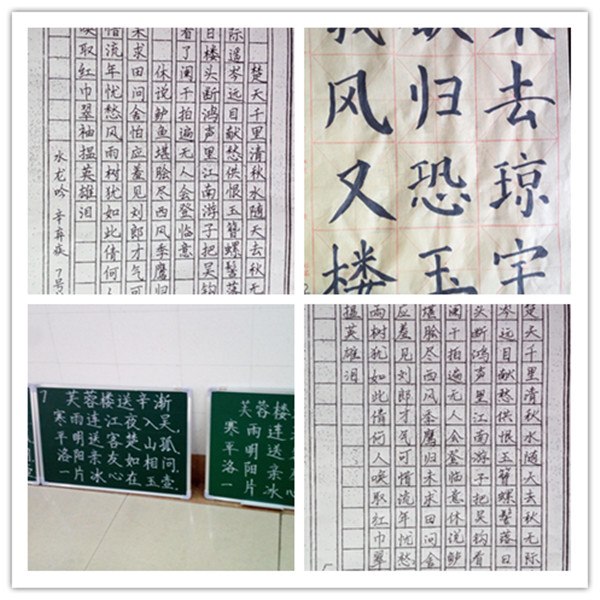 楚天千里清秋水随天去秋无
际遥岑远目献愁供恨玉簪螺髻落
日楼头断鸿声里江南游子把吴钩
看了阑干拍遍无人会登临意
休说鲈鱼堪脍尽西风季鹰归
未求田问舍怕应羞见刘郎才气可
惜流年忧愁风雨树犹如此倩何人
唤取红巾翠袖揾英雄泪
水龙吟 辛弃疾 7号
来去琼宇
欲归恐玉
我风又楼
7
芙蓉楼送辛渐
寒雨连江夜入吴
平明送客楚山孤
洛阳亲友如相问
一片冰心在玉壶
芙蓉楼送
寒雨连江
平明送客
洛阳亲友
一片冰
楚天千里清秋水随天去秋无际
岑远目献愁供恨玉簪螺髻落日
头断鸿声里江南游子把吴钩看
干拍遍无人会登临意休说鲈
脍尽西风季鹰归未求田问舍
应羞见刘郎才气可惜流年忧愁
雨树犹如此倩何人唤取红巾翠
揾英雄泪